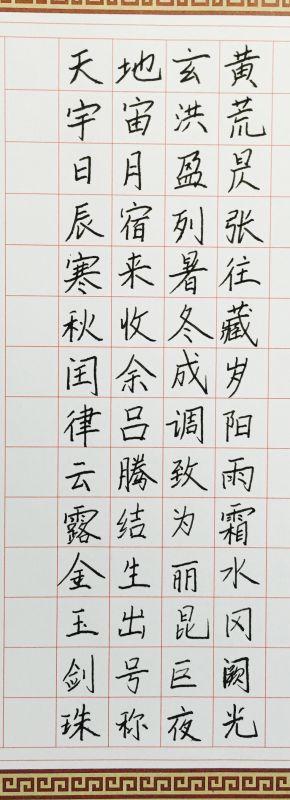 天地玄黄
宇宙洪荒
日月盈昃
辰宿列张
寒来暑往
秋收冬藏
闰余成岁
律吕调阳
云腾致雨
露结为霜
金生丽水
玉出昆冈
剑号巨阙
珠称夜光